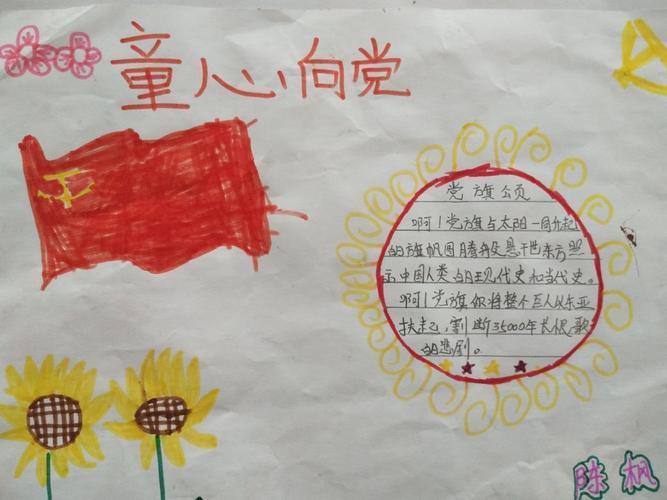 童心向党
党旗颂
啊！党旗与太阳一同升起
的旗帆图腾我悬于世东方照
示中国人类的现代史和当代史。
啊！党旗你将整个巨人从东亚
扶起，割断35000年长恨歌
的悲剧。
陈枫